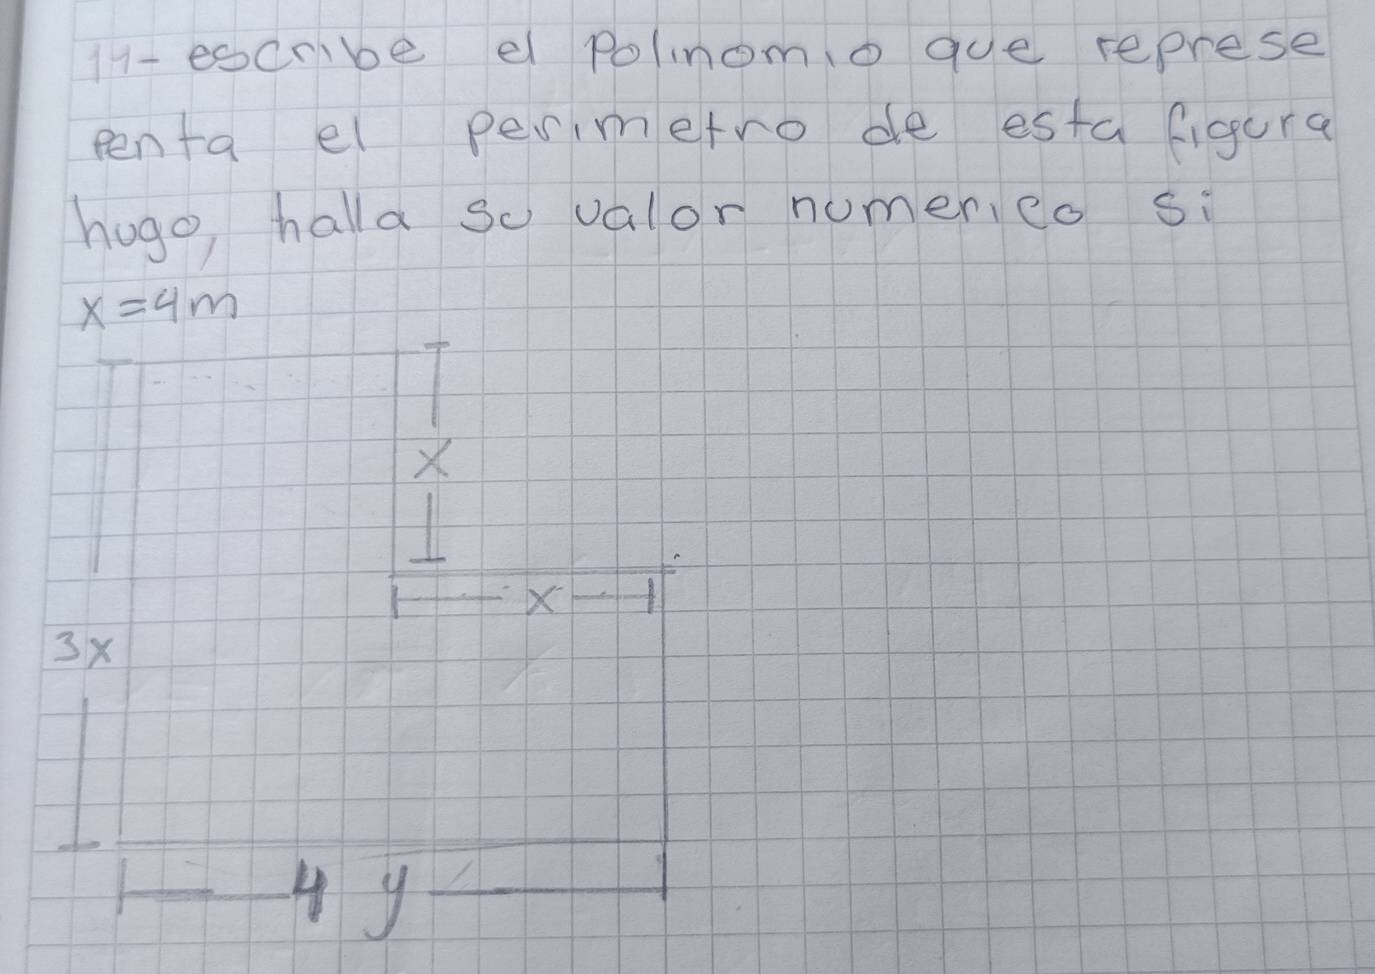 14- escribe el Polinomio que represe
penta el perimetro de esta figura
hugo, halla su valor numerico si
x=4m
x
x
3x
4 y